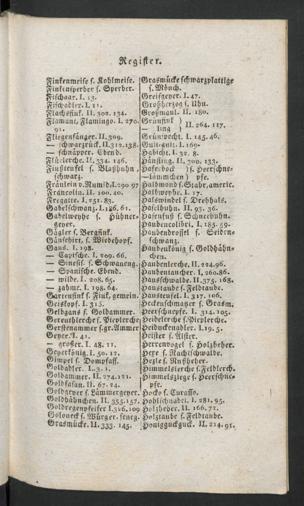 Register.
Finkenmeise s. Kohlmeise.
Finkensperber s. Sperber.
Fischaar. I. 13.
Fischadler. I. 11.
Flachsfink. II. 302. 134.
Flamant, Flamingo. I. 170.
91.
Fliegenfänger. II. 309.
— schwarzrück. II. 312. 138.
— schnäpper. Ebend.
Flötlerche. II. 334. 146.
Flußteufel s. Bläßhuhn,
schwarz.
Fräulein v. Numid. I. 290. 97
Francolin. II. 100. 40.
Fregatte. I. 251. 83.
Gabelschwanz. I. 126. 61.
Gabelweyhe s. Hühner-
geyer.
Gägler s. Bergfink.
Gänsehirt, s. Wiedehopf.
Gans. I. 198.
— Capische. I. 209. 66.
— Sinesis. s. Schwaneng.
— Spanische. Ebend.
— wilde. I. 208. 65.
— zahme. I. 198. 64.
Gartenfink s. Fink, gemein.
Geiskopf. I. 315.
Gelbgans s. Goldammer.
Gereuthlerche s. Pieplerche.
Gerstenammer s. gr. Ammer
Geyer. I. 41.
— großer. I. 48. 11.
Geyerkönig. I. 50. 12.
Gimpel s. Dompfaff.
Goldadler. I. 3. 1.
Goldammer. II. 274. 121.
Goldfasan. II. 67. 24.
Goldgeyer s. Lämmergeyer.
Goldhähnchen. II. 355. 157.
Goldregenpfeifer I. 316. 109
Goloneck s. Würger, finng.
Grasmücke. II. 333. 145.
Grasmücke schwarzplattige
s. Mönch.
Greifgeyer. I. 47.
Großherzog s. Uhu.
Großmaul. II. 180.
Grünfink } II. 264. 117.
— ling
Grünspecht. I. 145. 46.
Guit-guit. I. 169.
Habicht. I. 32. 8.
Hänfling. II. 300. 133.
Haferbock } s. Heerschne-
— lämmchen } pfe.
Halbmond s. Stahr, americ.
Halsweyhe. I. 17.
Halswindel s. Drehhals.
Haselhuhn. II. 93. 36.
Hasenfuß s. Schneehuhn.
Haubencolibri. I. 185. 59.
Haubendrossel s. Seiden-
schwanz.
Haubenkönig s. Goldhähn-
chen.
Haubenlerche. II. 224. 96.
Haubentaucher. I. 260. 86.
Hausschwalbe. II. 375. 168.
Haustaube s. Feldtaube.
Hausteufel. I. 317. 106.
Heckenschmatzer s. Grasm.
Heerschnepfe. I. 314. 105.
Heidelerche s. Pieplerche.
Heiduckenadler. I. 19. 5.
Heister s. Aelster.
Herrenvogel s. Holzheher.
Hexe s. Nachtschwalbe.
Hegler s. Nußheher.
Himmelslerche s. Feldlerch.
Himmelsziege s. Heerschne-
pfe.
Hocko s. Curasso.
Hohlschnabel. I. 281. 95.
Holzheher. II. 166. 72.
Holztaube s. Feldtaube.
Honigguckguck. II. 214. 91.